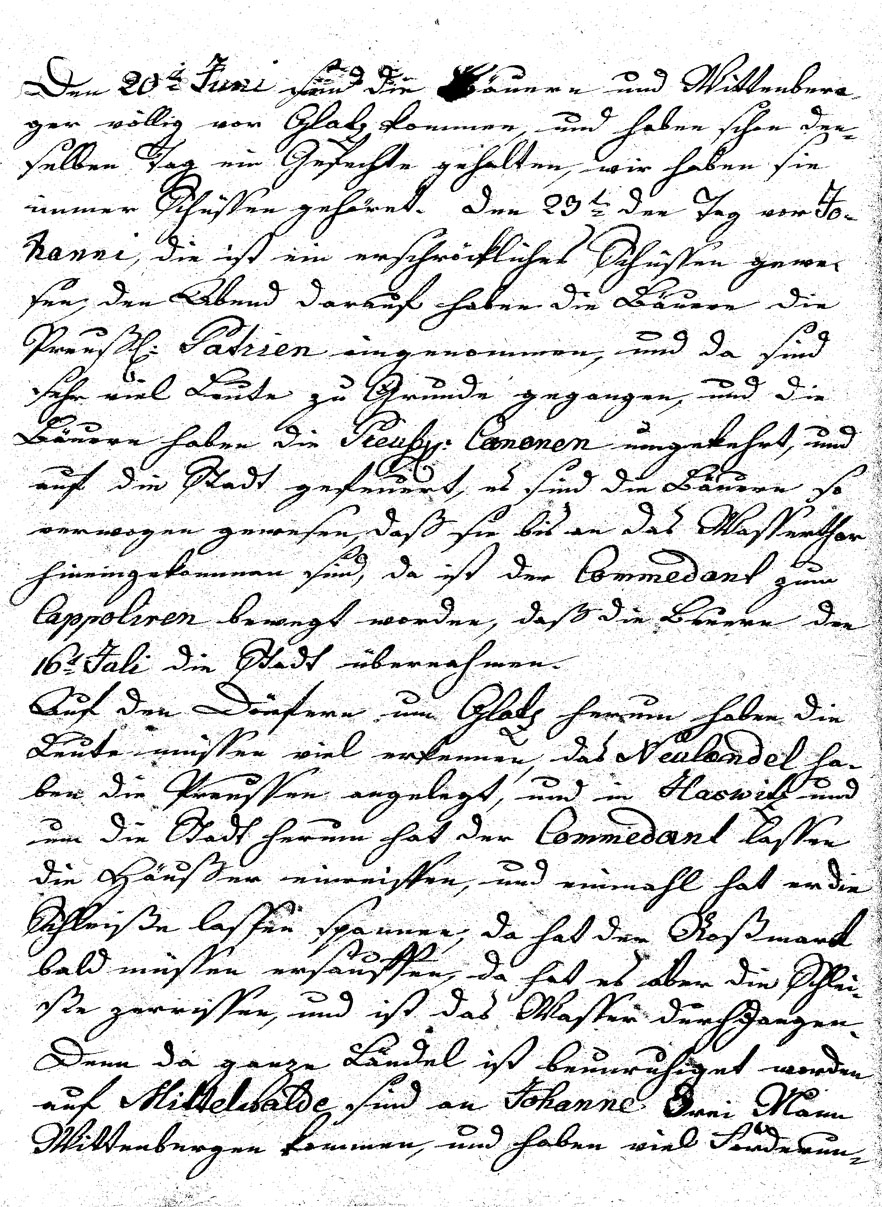 Den 20t Juni sind die Bäuern und Wittenber=
ger völlig vor Glatz kommen, und haben schon den=
selben Tag ein Gefechte gehalten, wir haben sie
immer Schüssen gehöret. Den 23t den Tag vor Jo=
hanni, die ist ein erschröckliches Schüssen gewe=
sen, den Abend darauf haben die Bäuern die
Preußl: Patrien eingenommen, und da sind
sehr viel Leute zu Grunde gegangen, und die
Bäuern haben die Preußl: Canonen umgekehrt, und
auf die Stadt gefeuert, es sind die Bäuern so
verwogen gewesen, daß sie bis an das Wasserthor
hineingekommen sind, da ist der Commedant zum
Cappoliren bewegt worden, daß die Beuern den
16t Juli die Stadt übernahmen.
Auf den Dörfern um Glatz herum haben die
Leute müssen viel erkennen, das Neuländel ha=
ben die Preussen angelegt, und in Haswitz und
um die Stadt herum hat der Commedant lassen
die Häußer einreissen, und einmahl hat er die
Schleiße lassen spannen, da hat der Roßmarck
bald müssen ersauffen, da hat es aber die Schlei=
ße zerrissen, und ist das Wasser durchgangen.
Denn da ganze Ländel ist beunruhiget worden
auf Mittelwalde sind an Johanne Drei Mann
Wittenbergen kommen, und haben viel Forderun=